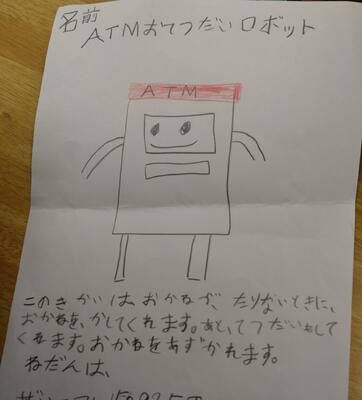 名前
ATMおてつだいロボット
ATM
このきかいは、おかねが、たりないときに、
おかねを、かしてくれます。あと、てつだいもして
くれます。おかねをあずかれます。
ねだんは、